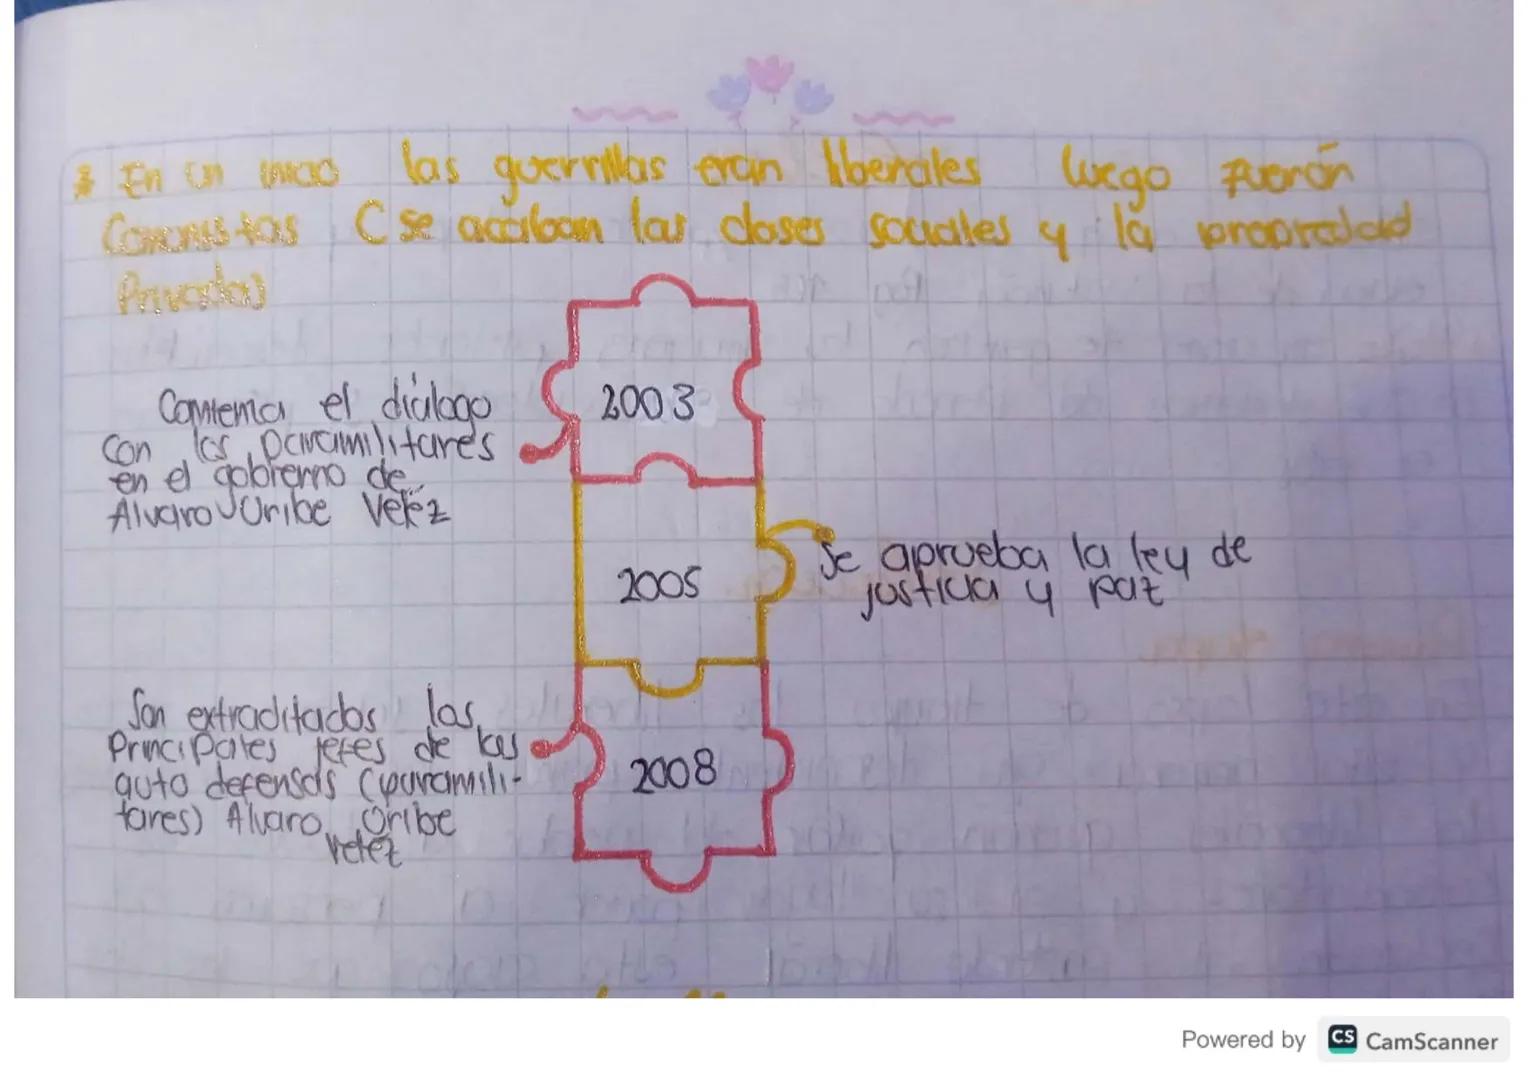 * En un inicio las guerrillas eran liberales luego fuerón
Comunistas (se acaban las clases sociales y la propiedad
Privada)
2003
Comienza el diálogo
con los paramilitares
en el gobierno de
Alvaro Uribe Veléz
2005
Se aprueba la ley de
justicia y paz
2008
Son extraditados los
Principales jefes de las
auto defensas (paramili-
tares) Alvaro Uribe
Veléz
Powered by CS CamScanner